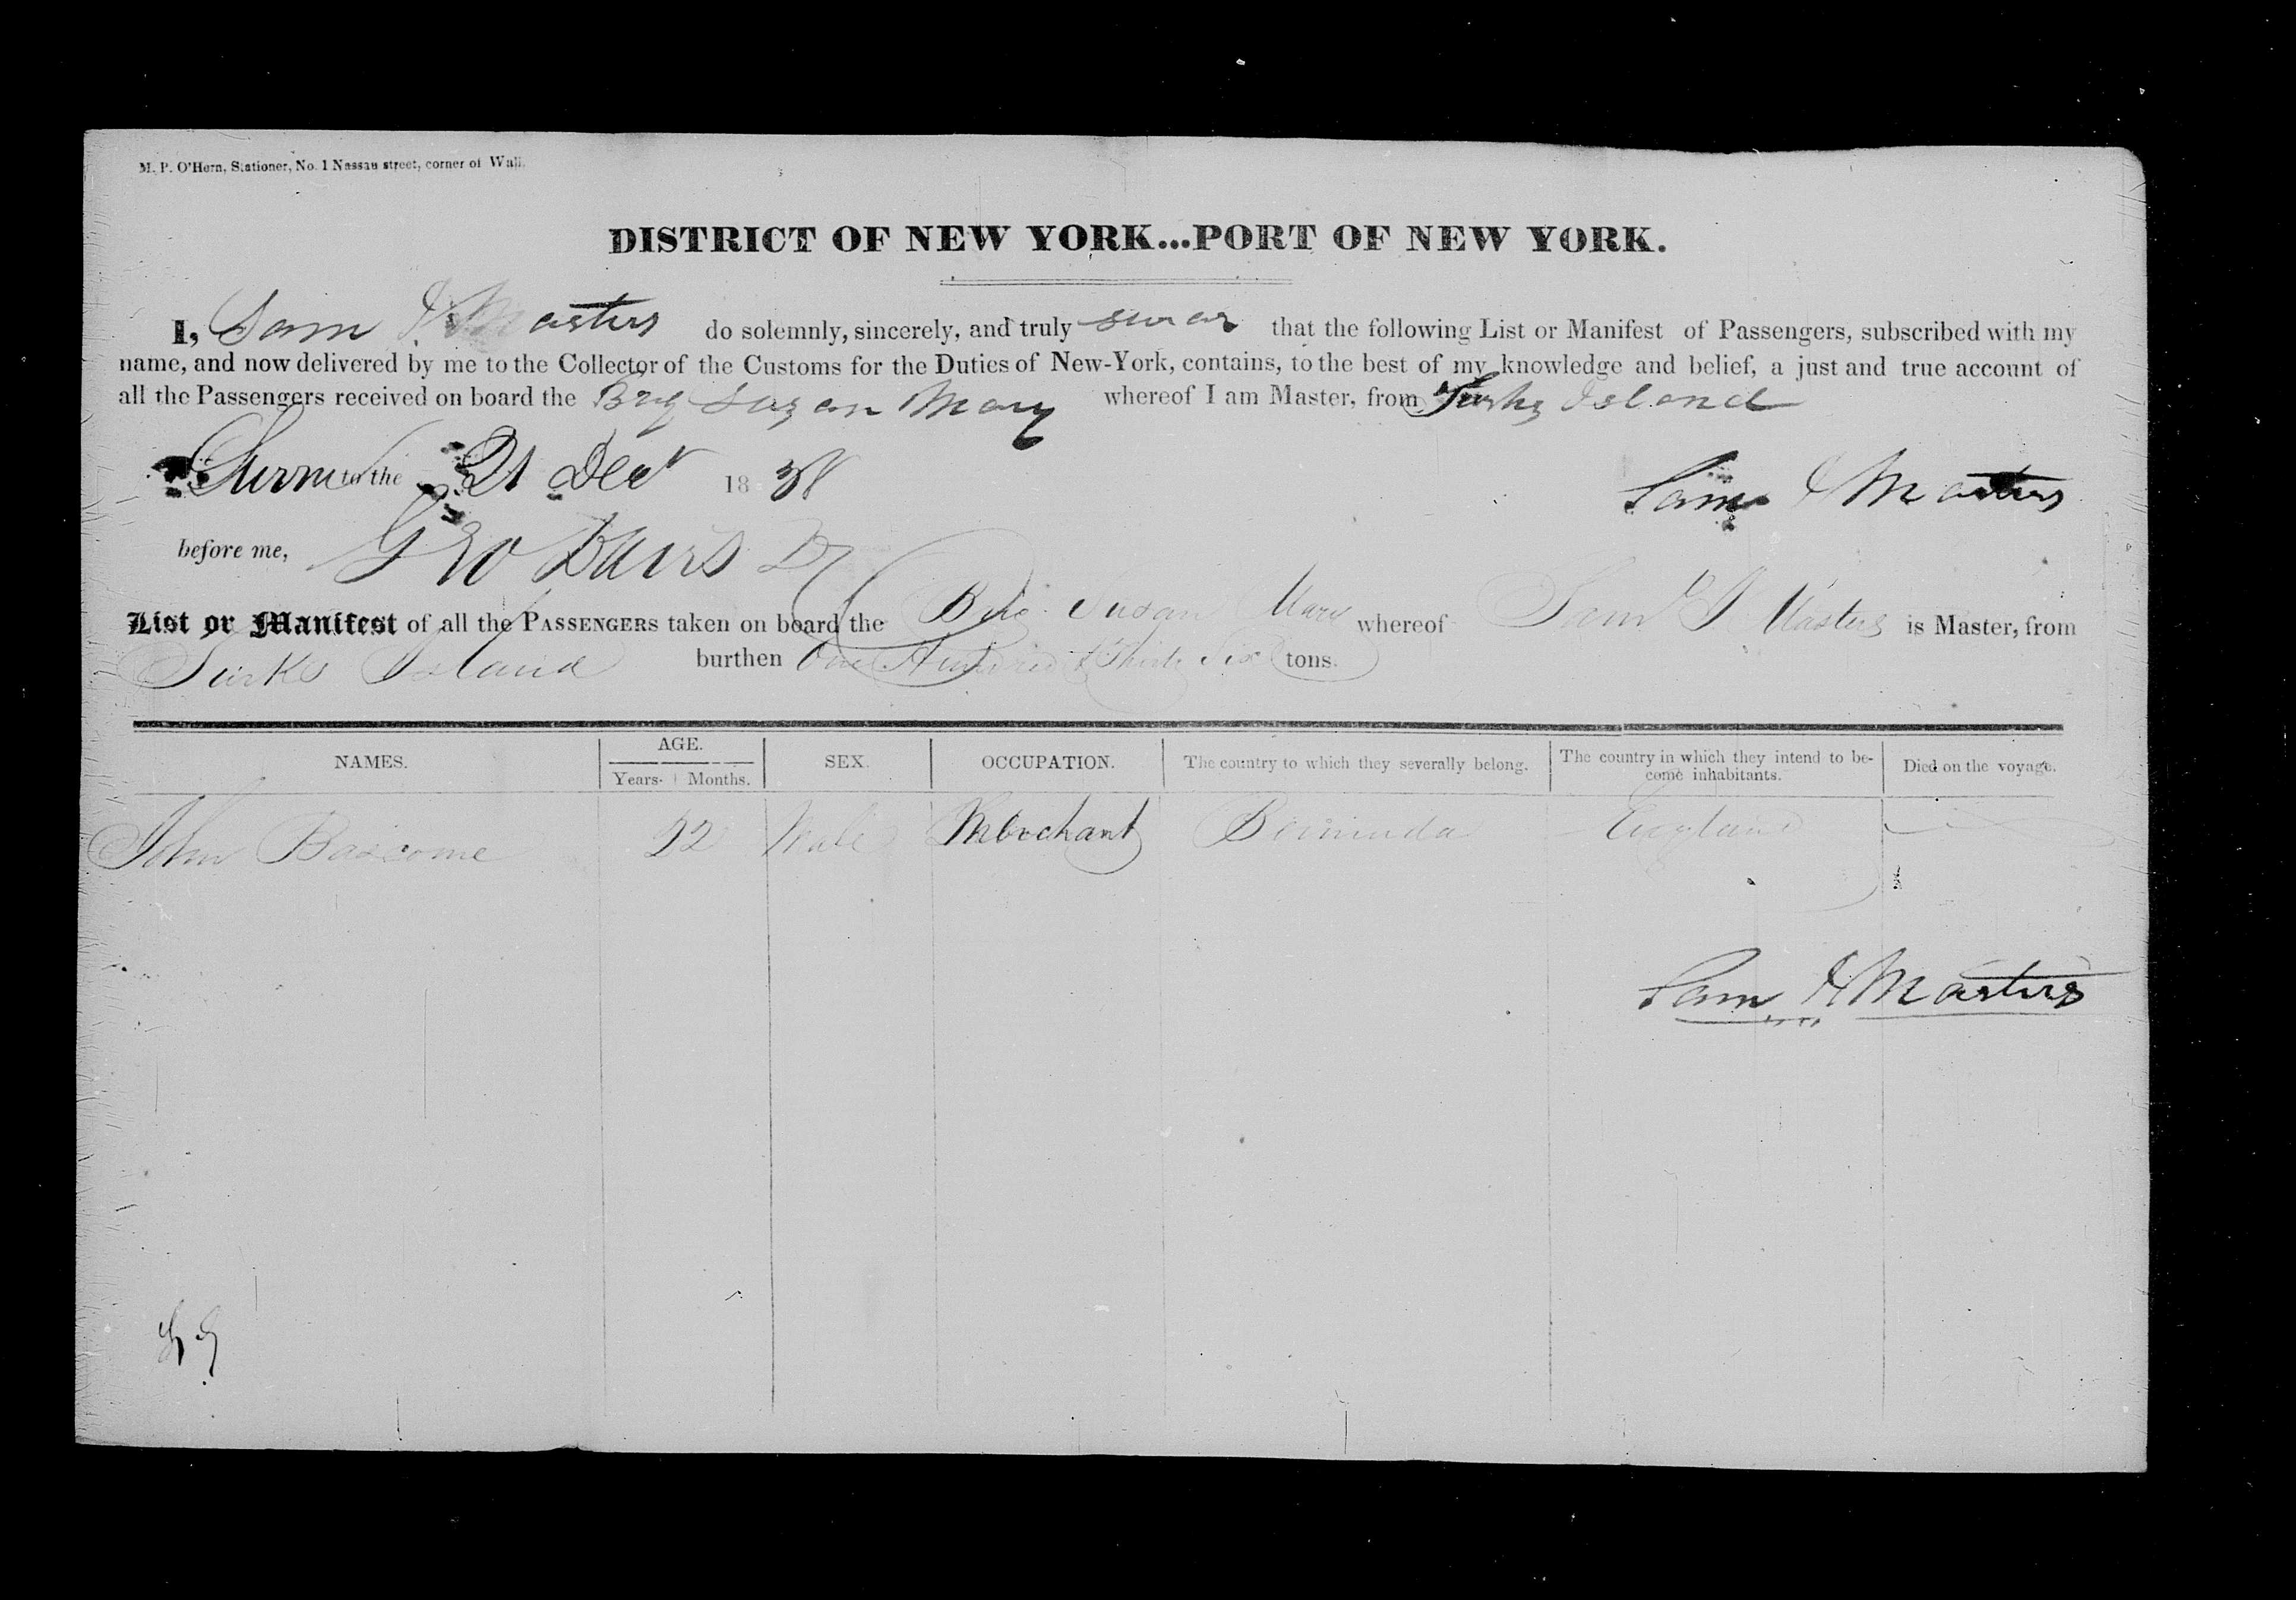 M. P. O'Hern, Stationer, No. 1 Nassau street, corner of Wall.
DISTRICT OF NEW YORK...PORT OF NEW YORK.
I, Sam J Masters do solemnly, sincerely, and truly swear that the following List or Manifest of Passengers, subscribed with my
name, and now delivered by me to the Collector of the Customs for the Duties of New-York, contains, to the best of my knowledge and belief, a just and true account of
all the Passengers received on board the Brig Suzan Mary whereof I am Master, from Turks Island
to the 21 Decr 1838
Sam J Masters
before me, Geo Davis
List or Manifest of all the PASSENGERS taken on board the Brig Susan Mary whereof Saml J Masters is Master, from
Turks Island burthen One Hundred & Thirty Six tons.
NAMES. AGE. SEX. OCCUPATION. The country to which they severally belong. The country in which they intend to be-
come inhabitants. Died on the voyage.
Years. Months.
John Bascome 22 Male Merchant Bermuda England
Sam J Masters